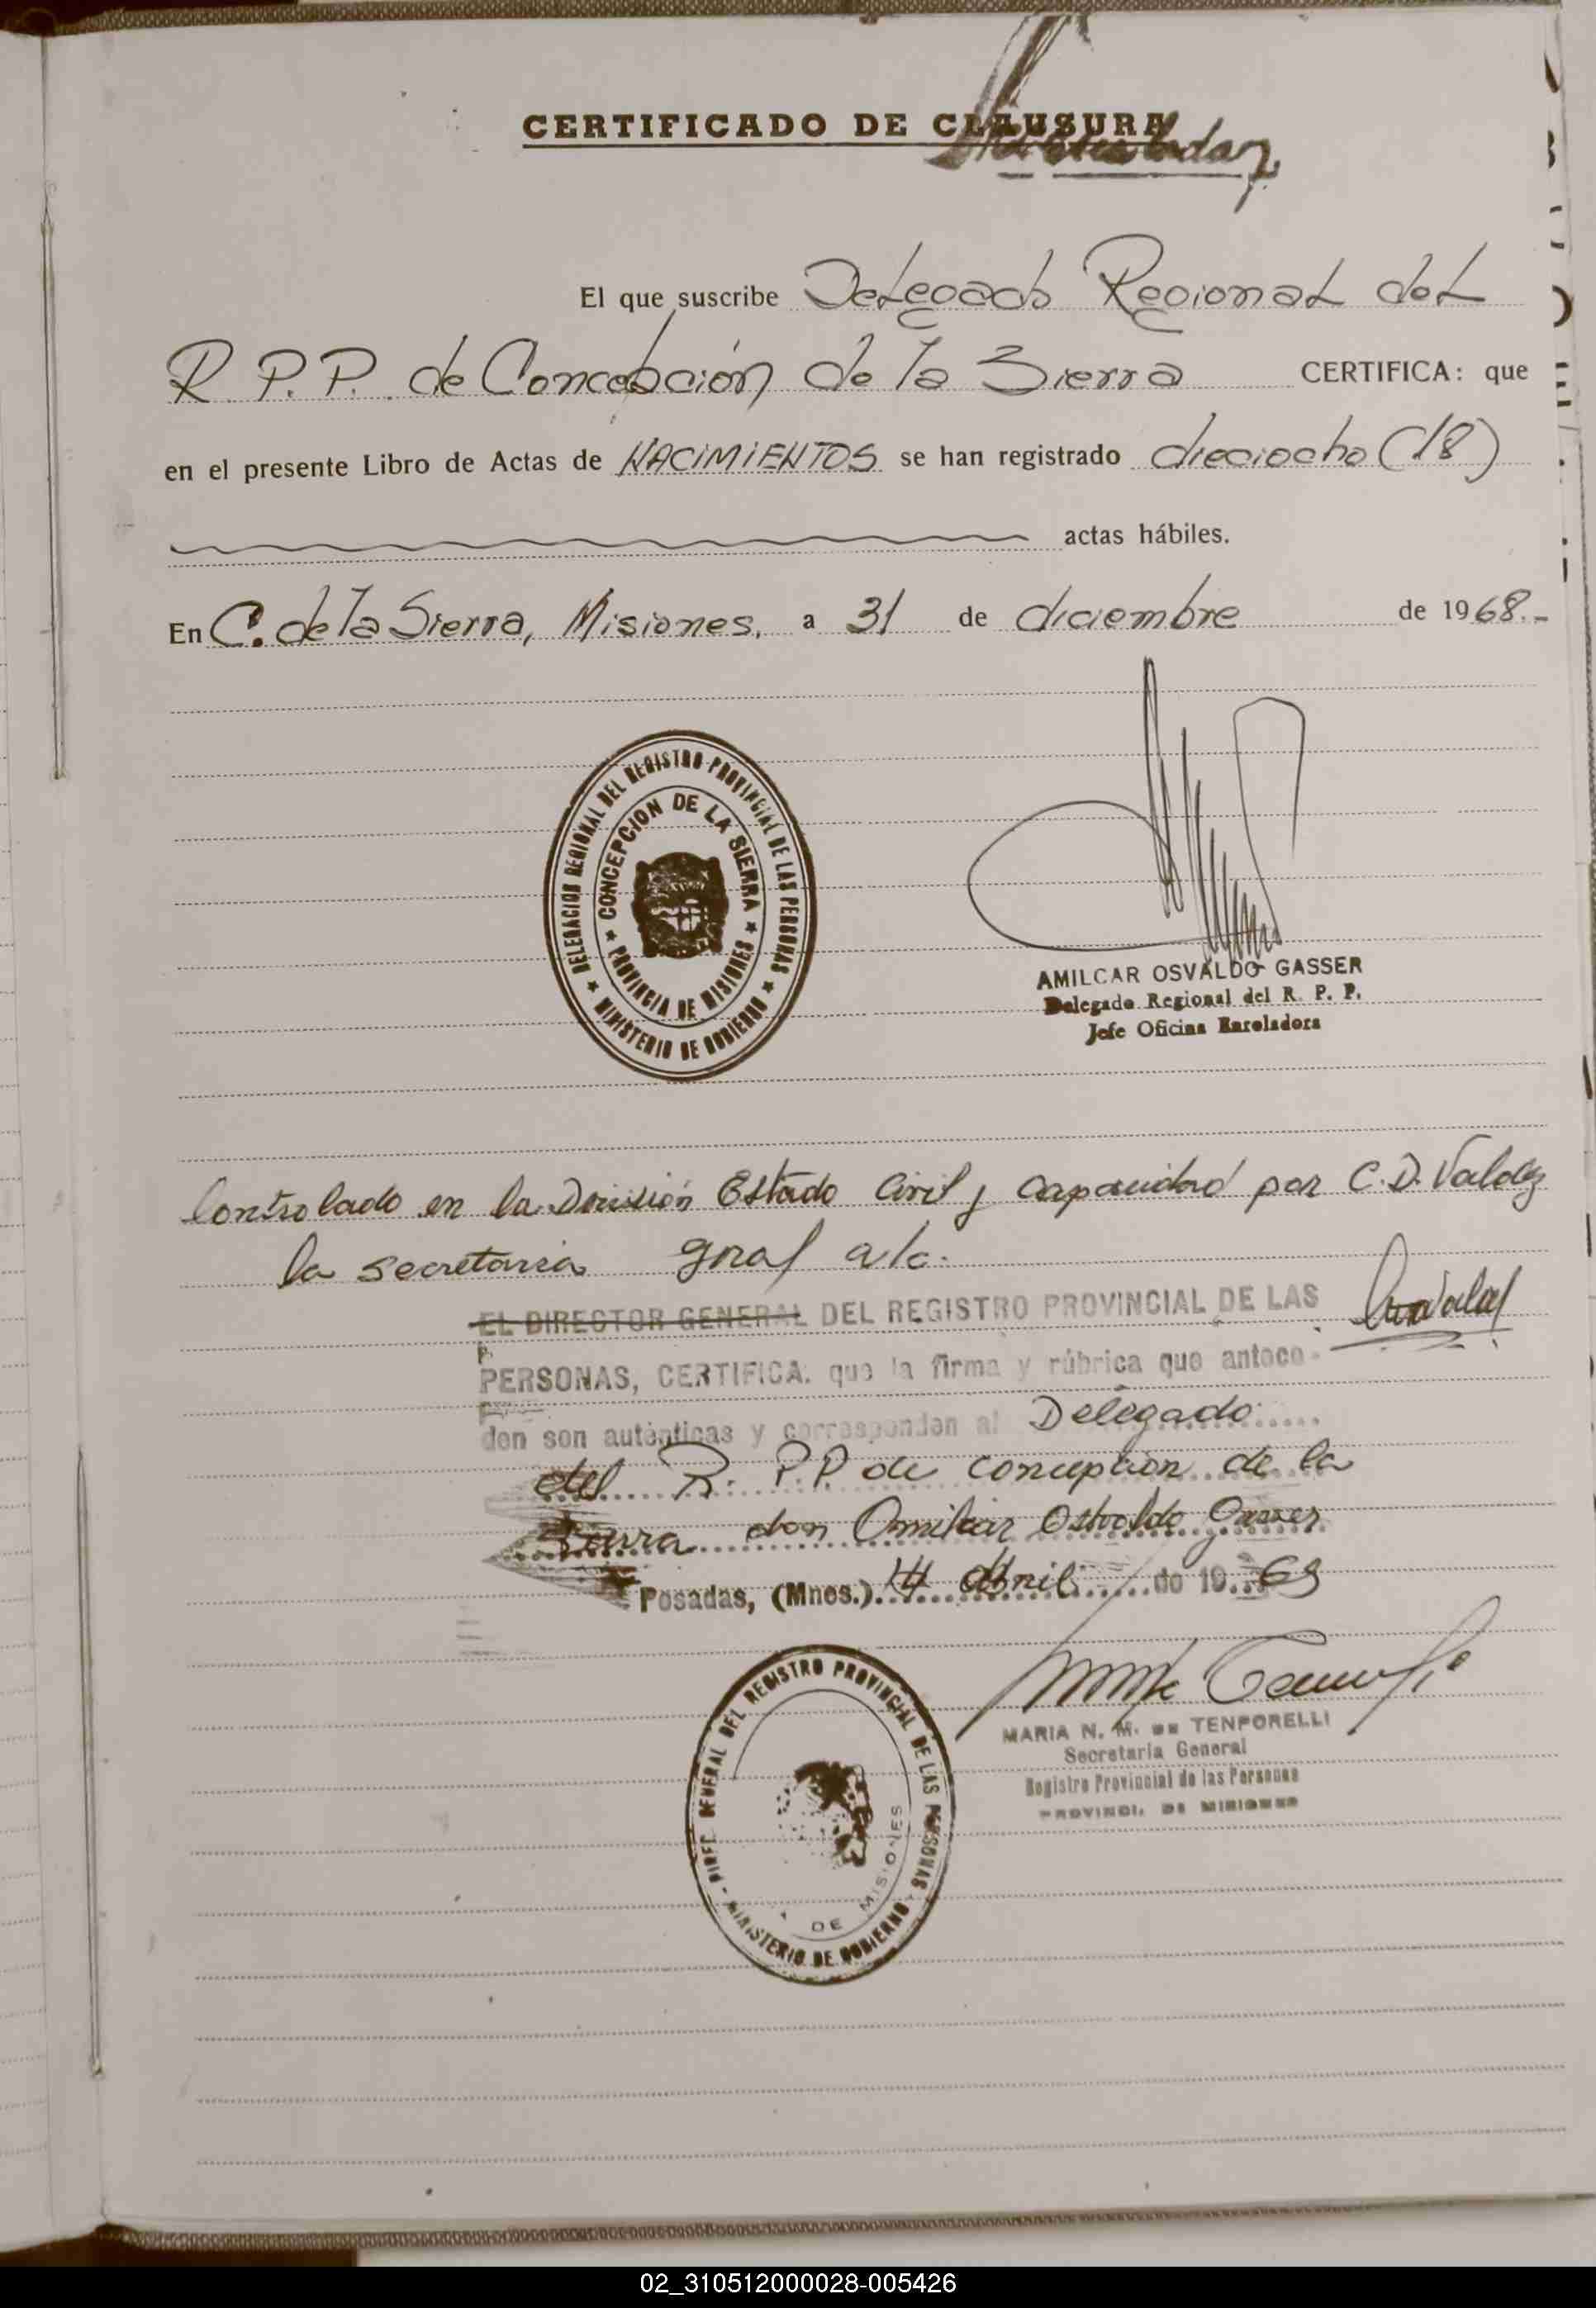 CERTIFICADO DE CLAUSURA
El que suscribe Delegado Regional del
R. P. P. de Concepción de la Sierra CERTIFICA: que
en el presente Libro de Actas de NACIMIENTOS se han registrado dieciocho (18)
actas hábiles.
En C. de la Sierra, Misiones, a 31 de diciembre de 1968.-
DELEGACION REGIONAL DEL REGISTRO PROVINCIAL DE LAS PERSONAS
CONCEPCION DE LA SIERRA
PROVINCIA DE MISIONES
MINISTERIO DE GOBIERNO
AMILCAR OSVALDO GASSER
Delegado Regional del R. P. P.
Jefe Oficina Enroladora
Controlado en la División Estado Civil y Capacidad por C. D. Valdez
la secretaria gral a/c.
EL DIRECTOR GENERAL DEL REGISTRO PROVINCIAL DE LAS
PERSONAS, CERTIFICA: que la firma y rúbrica que antece-
den son auténticas y corresponden al Delegado
del R. P.P. de concepcion de la
Sierra don Amilcar Osvaldo Gasser
Posadas, (Mnes.) 14 Abril de 1969
DIREC. GENERAL DEL REGISTRO PROVINCIAL DE LAS PERSONAS
DE MISIONES
MINISTERIO DE GOBIERNO
MARIA N. M. DE TENPORELLI
Secretaria General
Registro Provincial de las Personas
PROVINCIA DE MISIONES
02_310512000028-005426